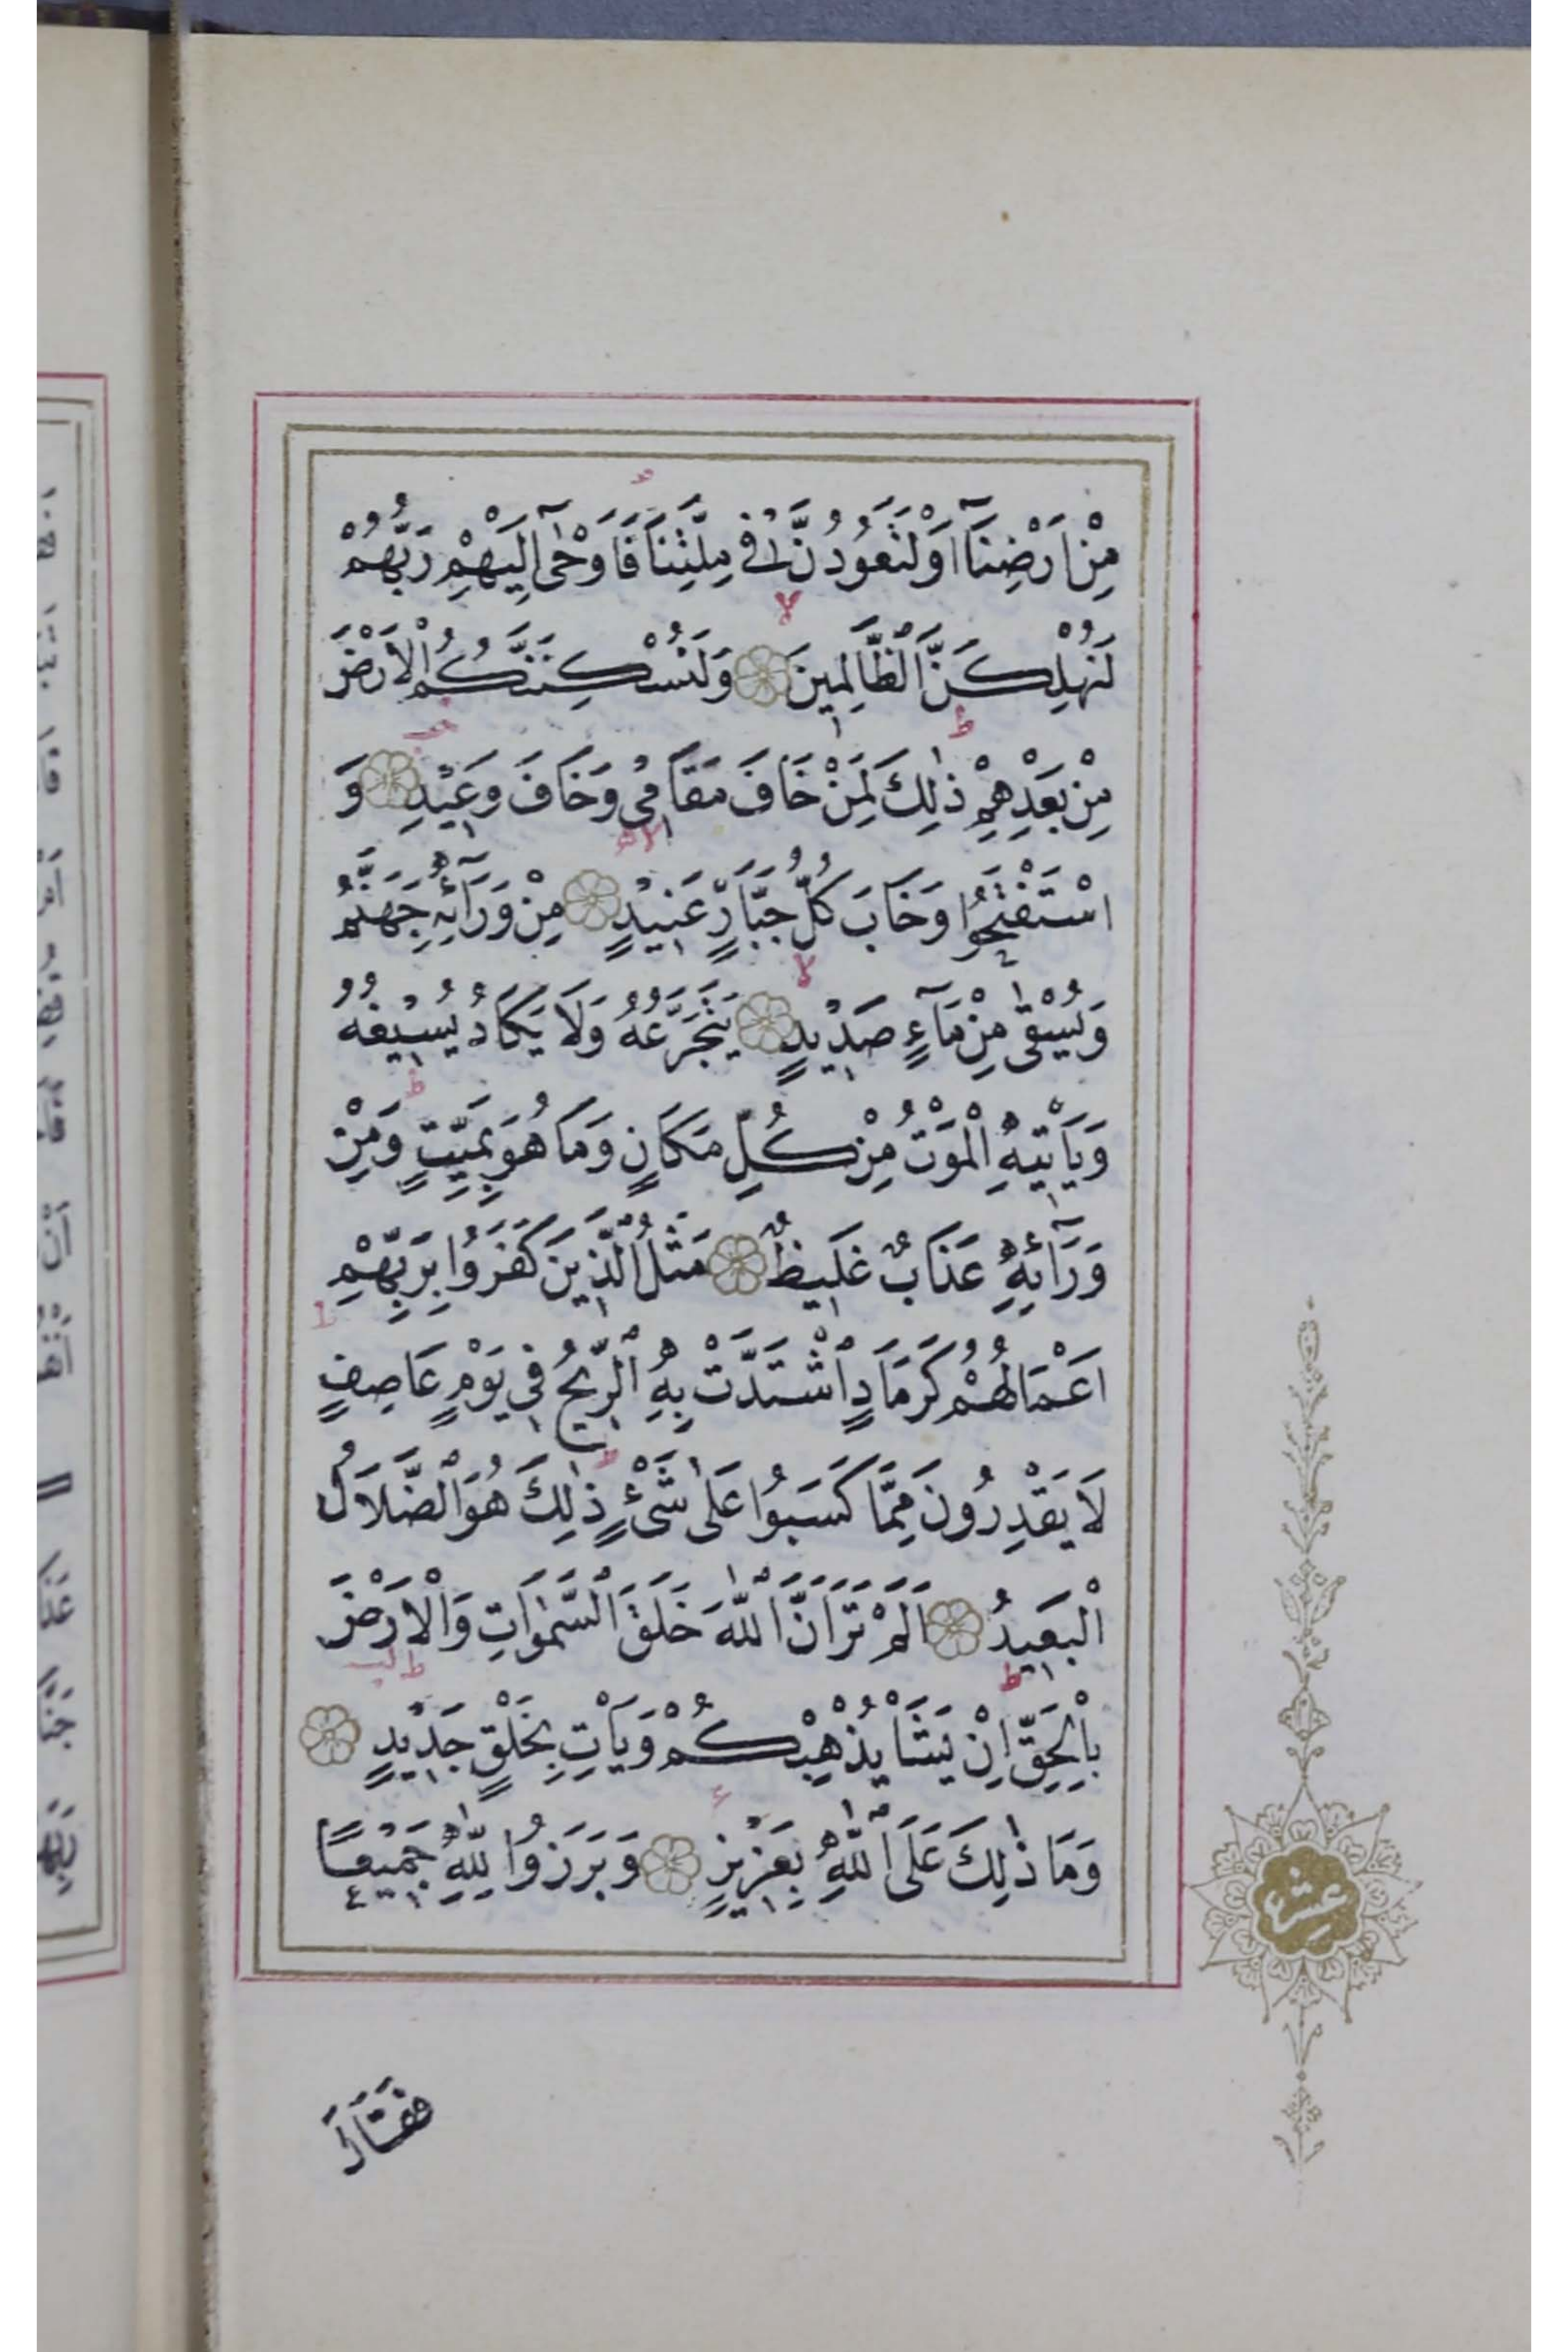 مِنْ اَرْضِنَٓا اَوْ لَتَعُودُنَّ فِي مِلَّتِنَا فَاَوْحٰٓى اِلَيْهِمْ رَبُّهُمْ
لَنُهْلِكَنَّ الظَّالِمِينَ وَلَنُسْكِنَنَّكُمُ الْاَرْضَ
مِنْ بَعْدِهِمْ ذٰلِكَ لِمَنْ خَافَ مَقَامِي وَخَافَ وَعِيدِ وَ
اسْتَفْتَحُوا وَخَابَ كُلُّ جَبَّارٍ عَنِيدٍ مِنْ وَرَٓائِهِ جَهَنَّمُ
وَيُسْقٰى مِنْ مَٓاءٍ صَدِيدٍ يَتَجَرَّعُهُ وَلَا يَكَادُ يُسِيغُهُ
وَيَاْتِيهِ الْمَوْتُ مِنْ كُلِّ مَكَانٍ وَمَا هُوَ بِمَيِّتٍ وَمِنْ
وَرَٓائِهِ عَذَابٌ غَلِيظٌ مَثَلُ الَّذِينَ كَفَرُوا بِرَبِّهِمْ
اَعْمَالُهُمْ كَرَمَادٍ اشْتَدَّتْ بِهِ الرِّيحُ فِي يَوْمٍ عَاصِفٍ
لَا يَقْدِرُونَ مِمَّا كَسَبُوا عَلٰى شَيْءٍ ذٰلِكَ هُوَ الضَّلَالُ
الْبَعِيدُ اَلَمْ تَرَ اَنَّ اللّٰهَ خَلَقَ السَّمٰوَاتِ وَالْاَرْضَ
بِالْحَقِّ اِنْ يَشَاْ يُذْهِبْكُمْ وَيَاْتِ بِخَلْقٍ جَدِيدٍ
وَمَا ذٰلِكَ عَلَى اللّٰهِ بِعَزِيزٍ وَبَرَزُوا لِلّٰهِ جَمِيعًا
فَقَالَ
عشر